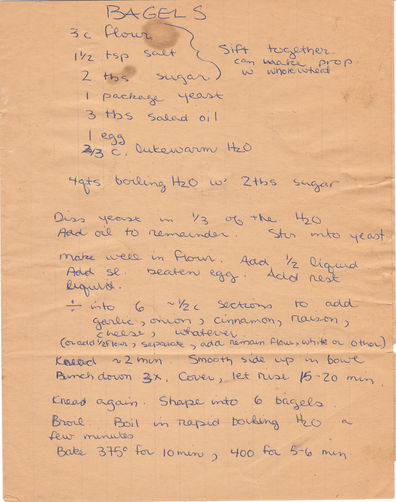 BAGELS
3 c flour
1 1/2 tsp salt
2 tbs sugar
Sift together.
can make prop
w whole wheat
1 package yeast
3 tbs salad oil
1 egg
2/3 c. lukewarm H2O
4 qts boiling H2O w/ 2 tbs sugar
Diss yeast in 1/3 of the H2O
Add oil to remainder. Stir into yeast
make well in flour. Add 1/2 liquid
Add sl. beaten egg. Add rest
liquid.
÷ into 6 ~1/2c sections to add
garlic, onion, cinnamon, raison,
cheese, whatever
(or add 1/2 flour, separate, add remain flour, white or other)
Knead ~2 min. Smooth side up in bowl
Punch down 3x. Cover, let rise 15-20 min.
Knead again. Shape into 6 bagels.
Broil. Boil in rapid boiling H2O a
few minutes
Bake 375° for 10 min, 400 for 5-6 min